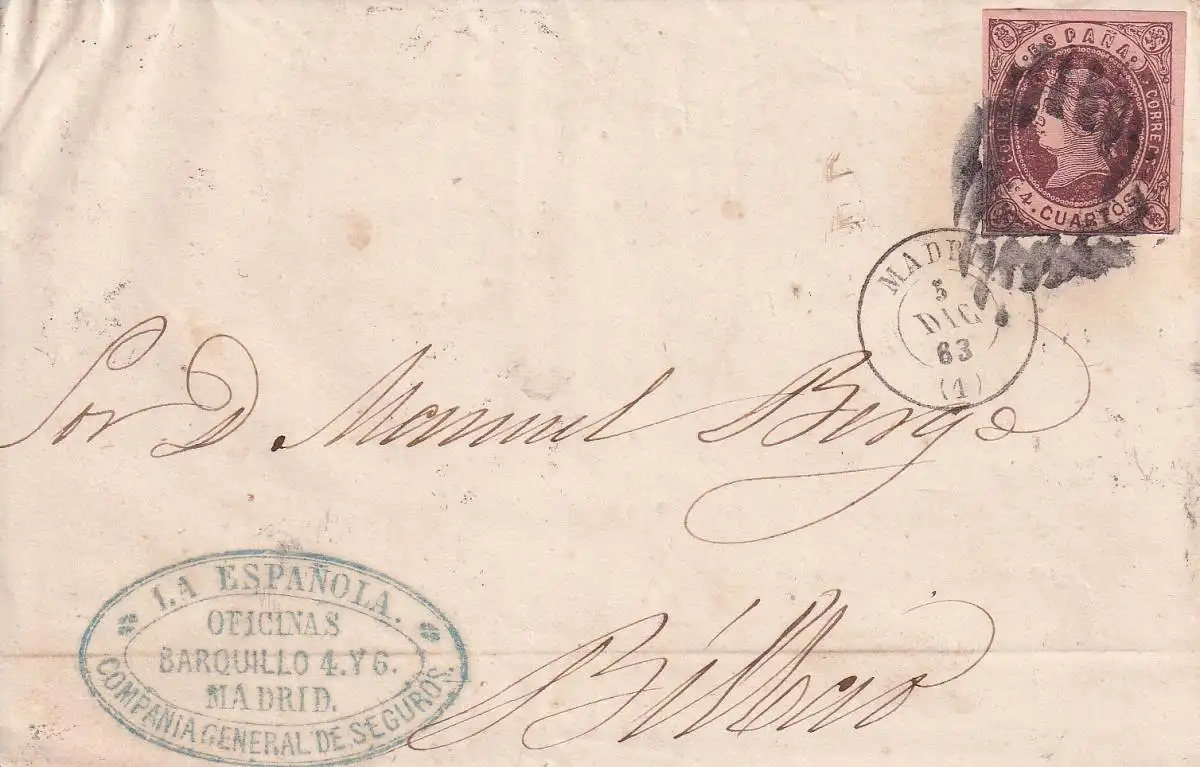 ESPAÑA
CORREOS
CORREOS
4. CUARTOS
MADRID
5
DIC
63
(1)
Sor D. Manuel Berge
Bilbao
LA ESPAÑOLA.
OFICINAS
BARQUILLO 4. Y 6.
MADRID.
COMPAÑIA GENERAL DE SEGUROS.